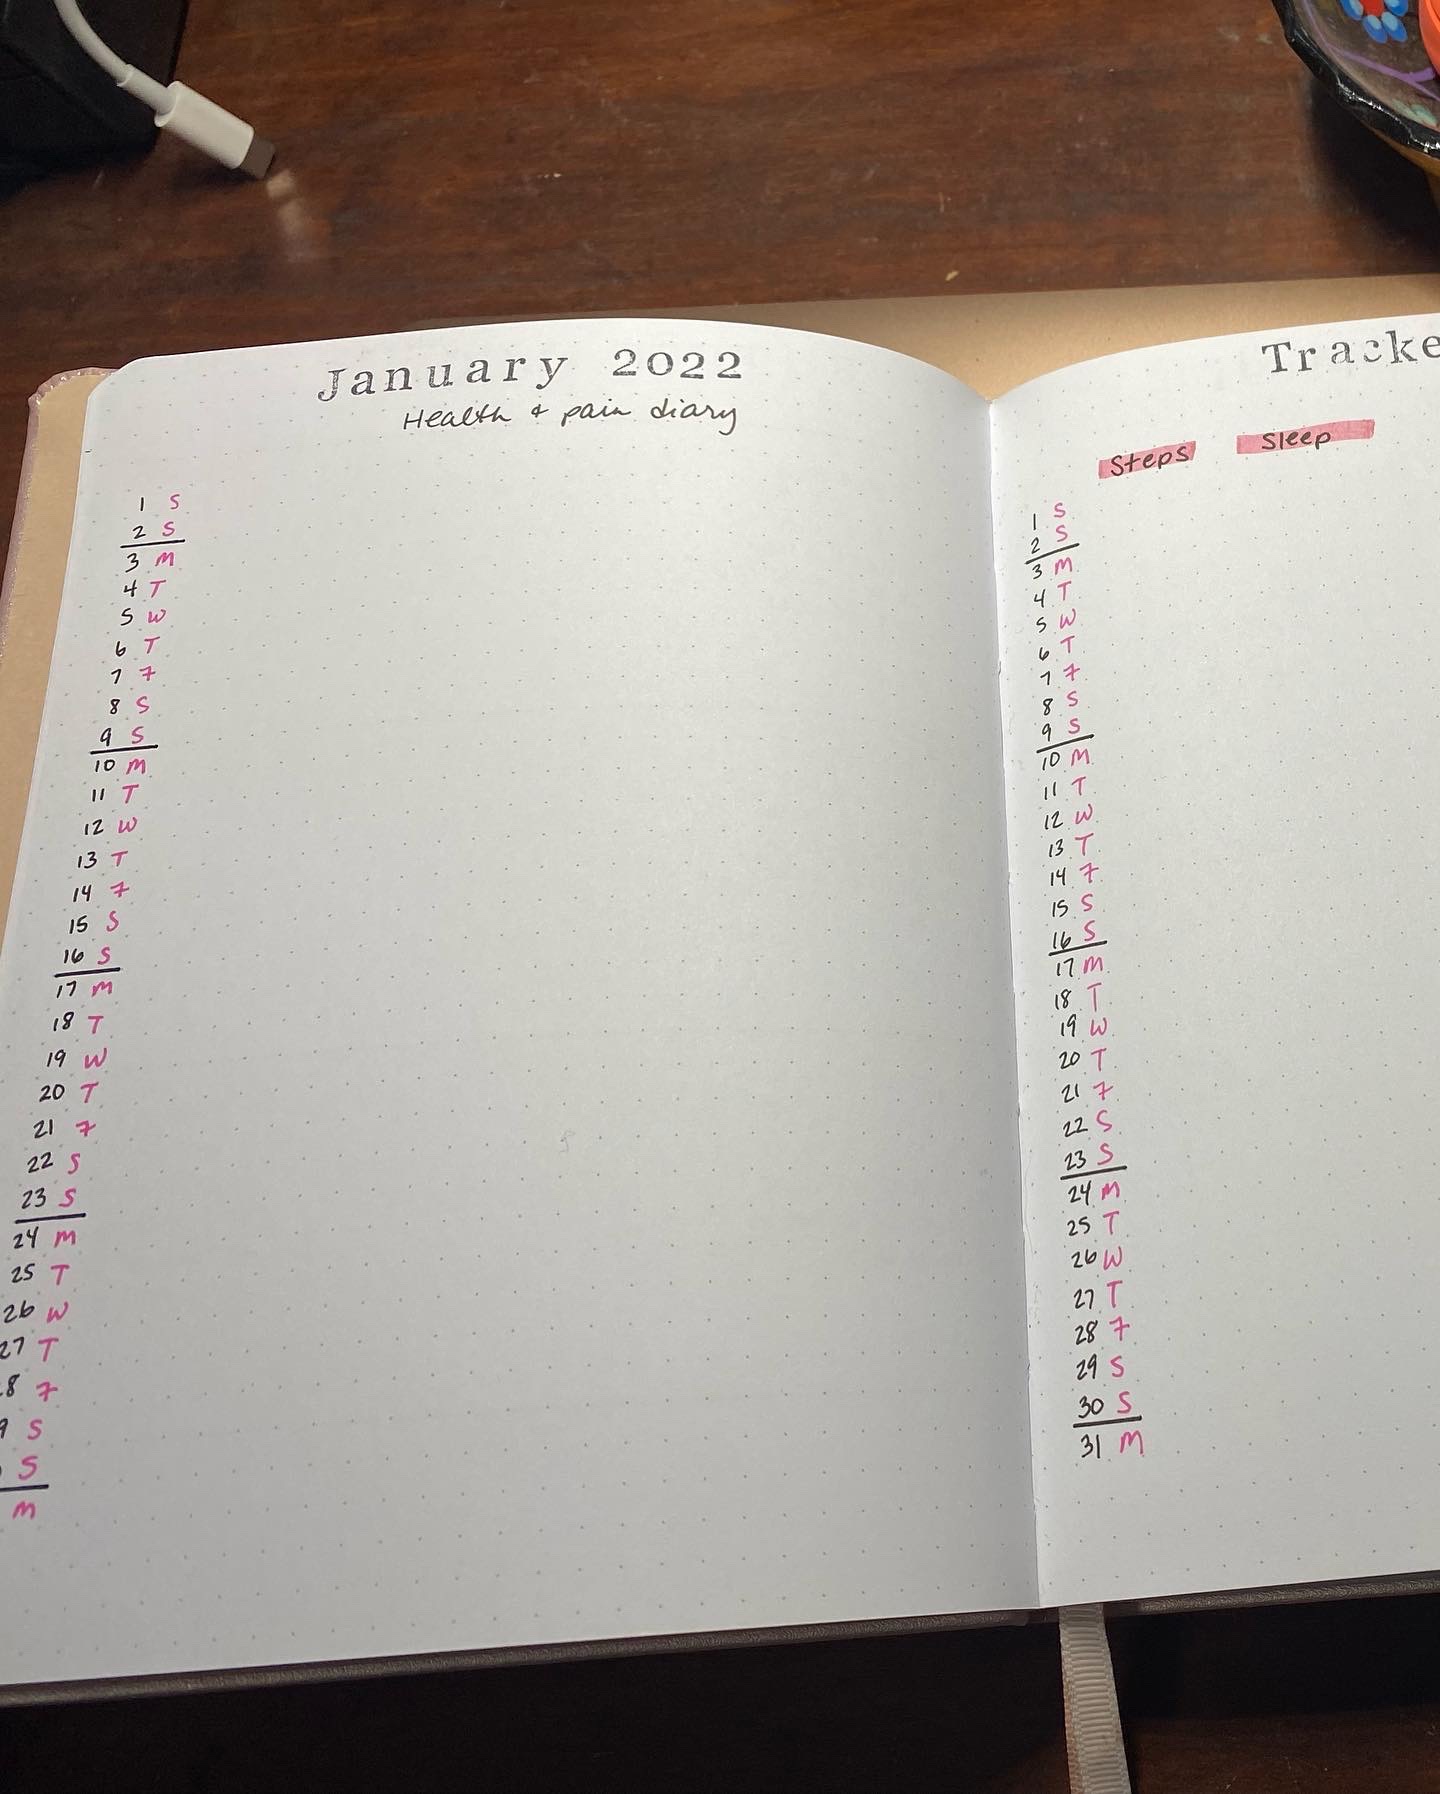 January 2022
Health & pain diary
1 S
2 S
3 M
4 T
5 W
6 T
7 F
8 S
9 S
10 M
11 T
12 W
13 T
14 F
15 S
16 S
17 M
18 T
19 W
20 T
21 F
22 S
23 S
24 M
25 T
26 W
27 T
8 F
9 S
S
M
Tracke
Steps Sleep
1 S
2 S
3 M
4 T
5 W
6 T
7 F
8 S
9 S
10 M
11 T
12 W
13 T
14 F
15 S
16 S
17 M
18 T
19 W
20 T
21 F
22 S
23 S
24 M
25 T
26 W
27 T
28 F
29 S
30 S
31 M